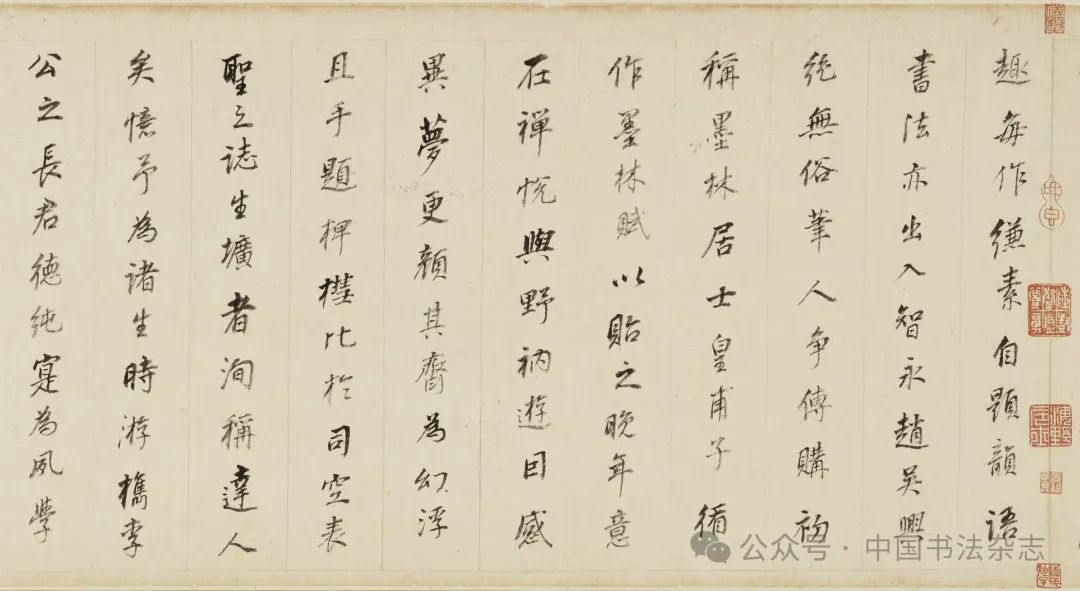 趣每作縑素自題韻語
書法亦出入智永趙吳興
絶無俗筆人争傳購初
稱墨林居士皇甫子循
作墨林賦以貽之晚年意
在禪悅與野衲遊因感
異夢更顏其齋為幻浮
且手題椑槥比於司空表
聖之誌生壙者洵稱達人
矣憶予為諸生時游檇李
公之長君德純寔為夙學
公众号·中国书法杂志